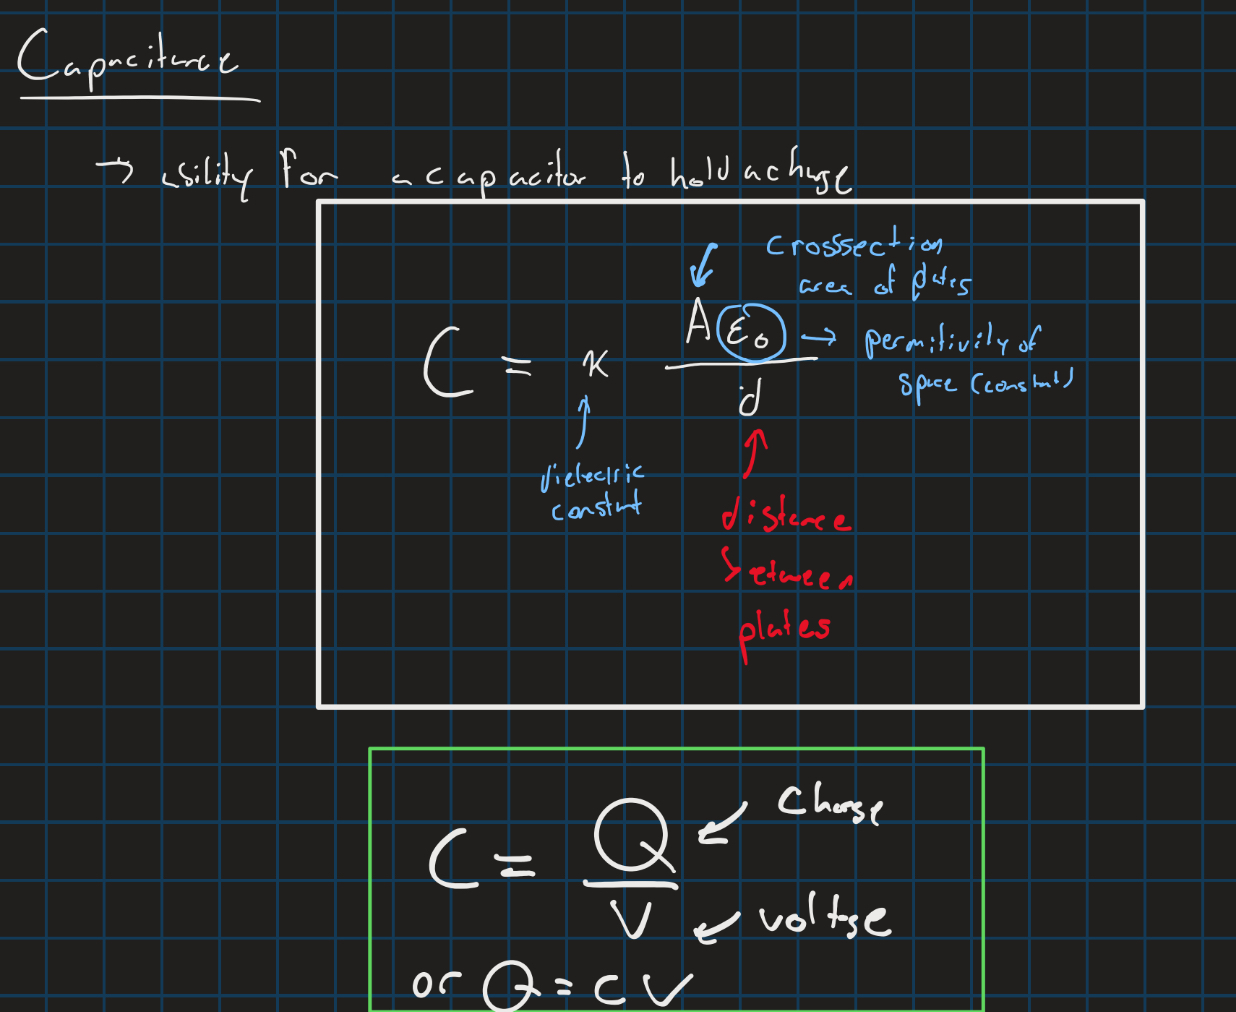 Capacitance
→ ability for a capacitor to hold a charge
crosssection
area of plates
C = κ Aε₀ / d
→ permitivity of
space (constant)
dielectric
constant
distance
between
plates
C = Q / V
charge
voltage
or Q = CV